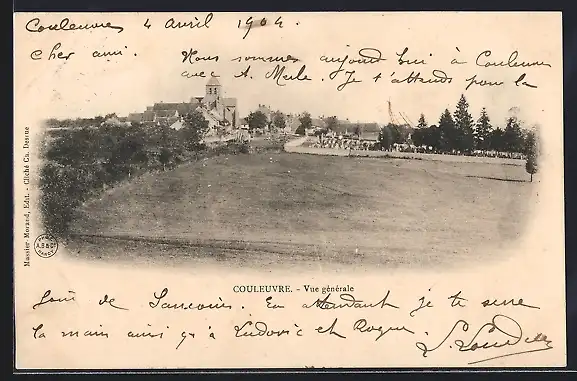 Couleuvre 4 Avril 1904.
cher ami. Nous sommes aujourd'hui à Couleuvre
avec A. Merle. Je t'attends pour la
Massier-Morand, Edit. - Cliché Ch. Derure
COULEUVRE. - Vue générale
foire de Sancoins. En attendant je te serre
la main ainsi qu'à Ludovic et Roque.